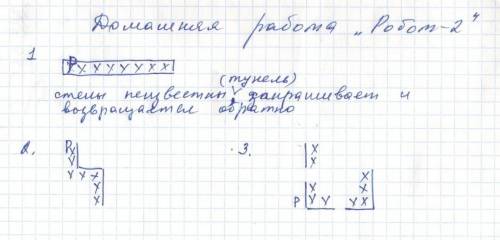 Домашняя работа „Робот-2"
1
Р х х х х х х х
(тунель)
стены неизвестны закрашивает и
возвращается обратно
2. 3.
Р х х
х х
х х х х х
х х х
х Р х х х х